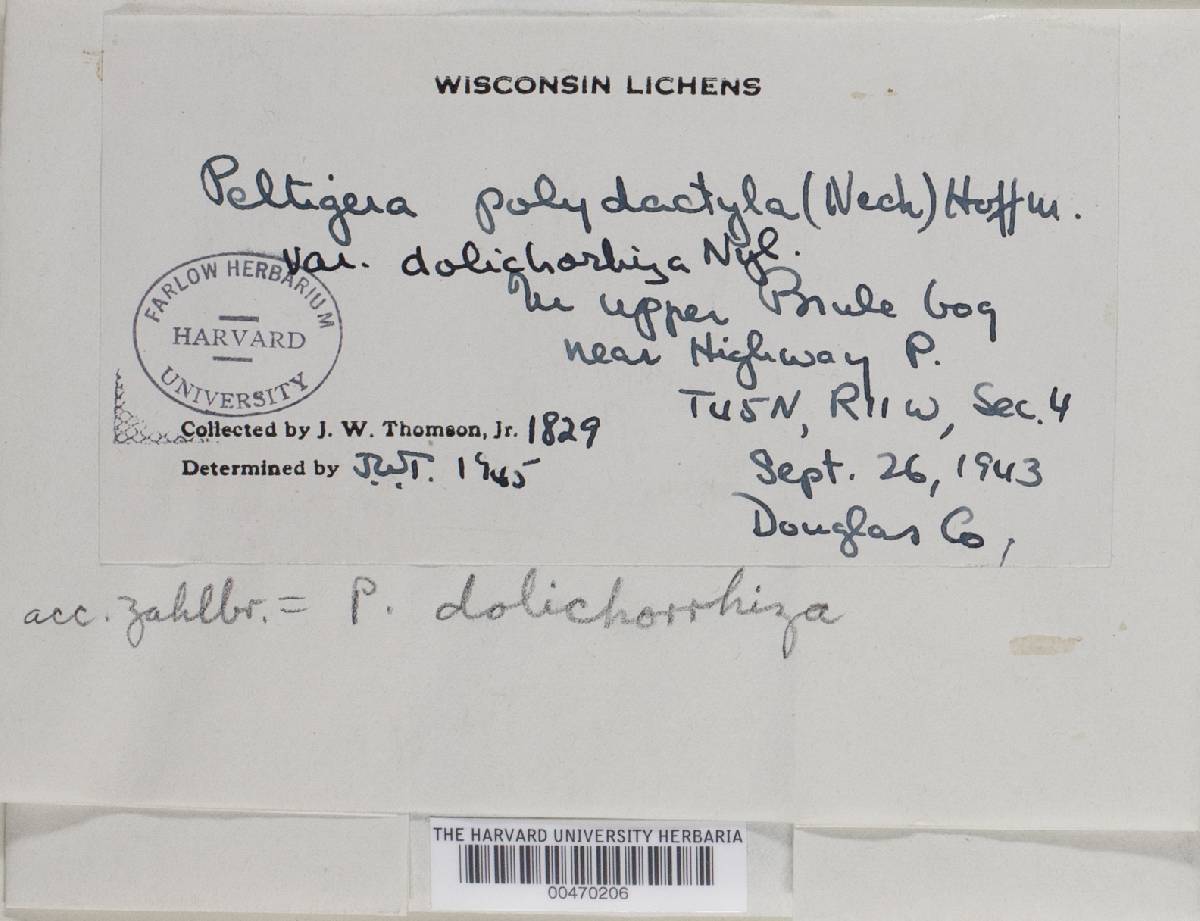 WISCONSIN LICHENS
Peltigera polydactyla (Neck) Hoffm.
var. dolichorhiza Nyl.
In upper Brule bog
near Highway P.
T45N, R11W, Sec. 4
FARLOW HERBARIUM
HARVARD
UNIVERSITY
Collected by J. W. Thomson, Jr. 1829
Determined by J.W.T. 1945
Sept. 26, 1943
Douglas Co,
acc. Zahlbr. = P. dolichorrhiza
THE HARVARD UNIVERSITY HERBARIA
00470206